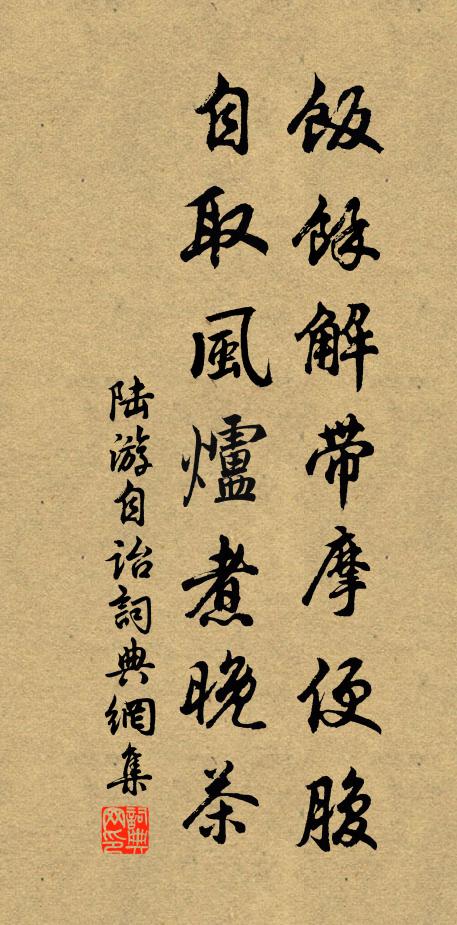 飯餘解带摩便腹
自取風爐煮晚茶
陆游自诒詞典網集
詞典网印